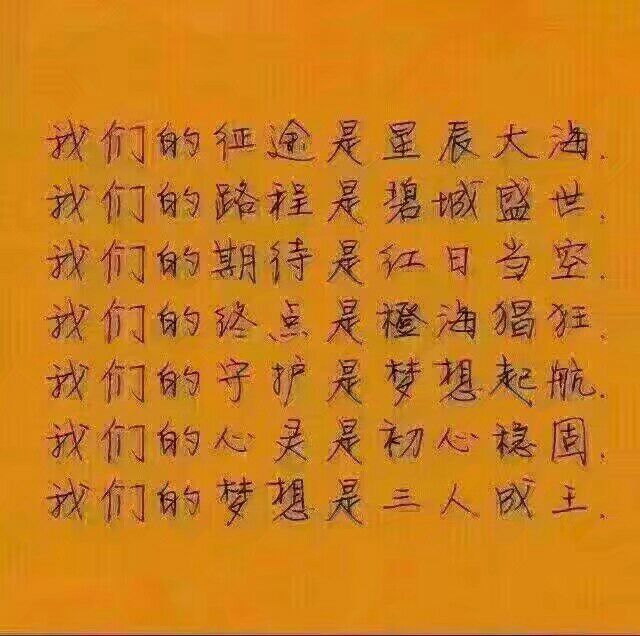 我们的征途是星辰大海.
我们的路程是碧城盛世.
我们的期待是红日当空.
我们的终点是橙海猖狂.
我们的守护是梦想起航.
我们的心灵是初心稳固.
我们的梦想是三人成王.